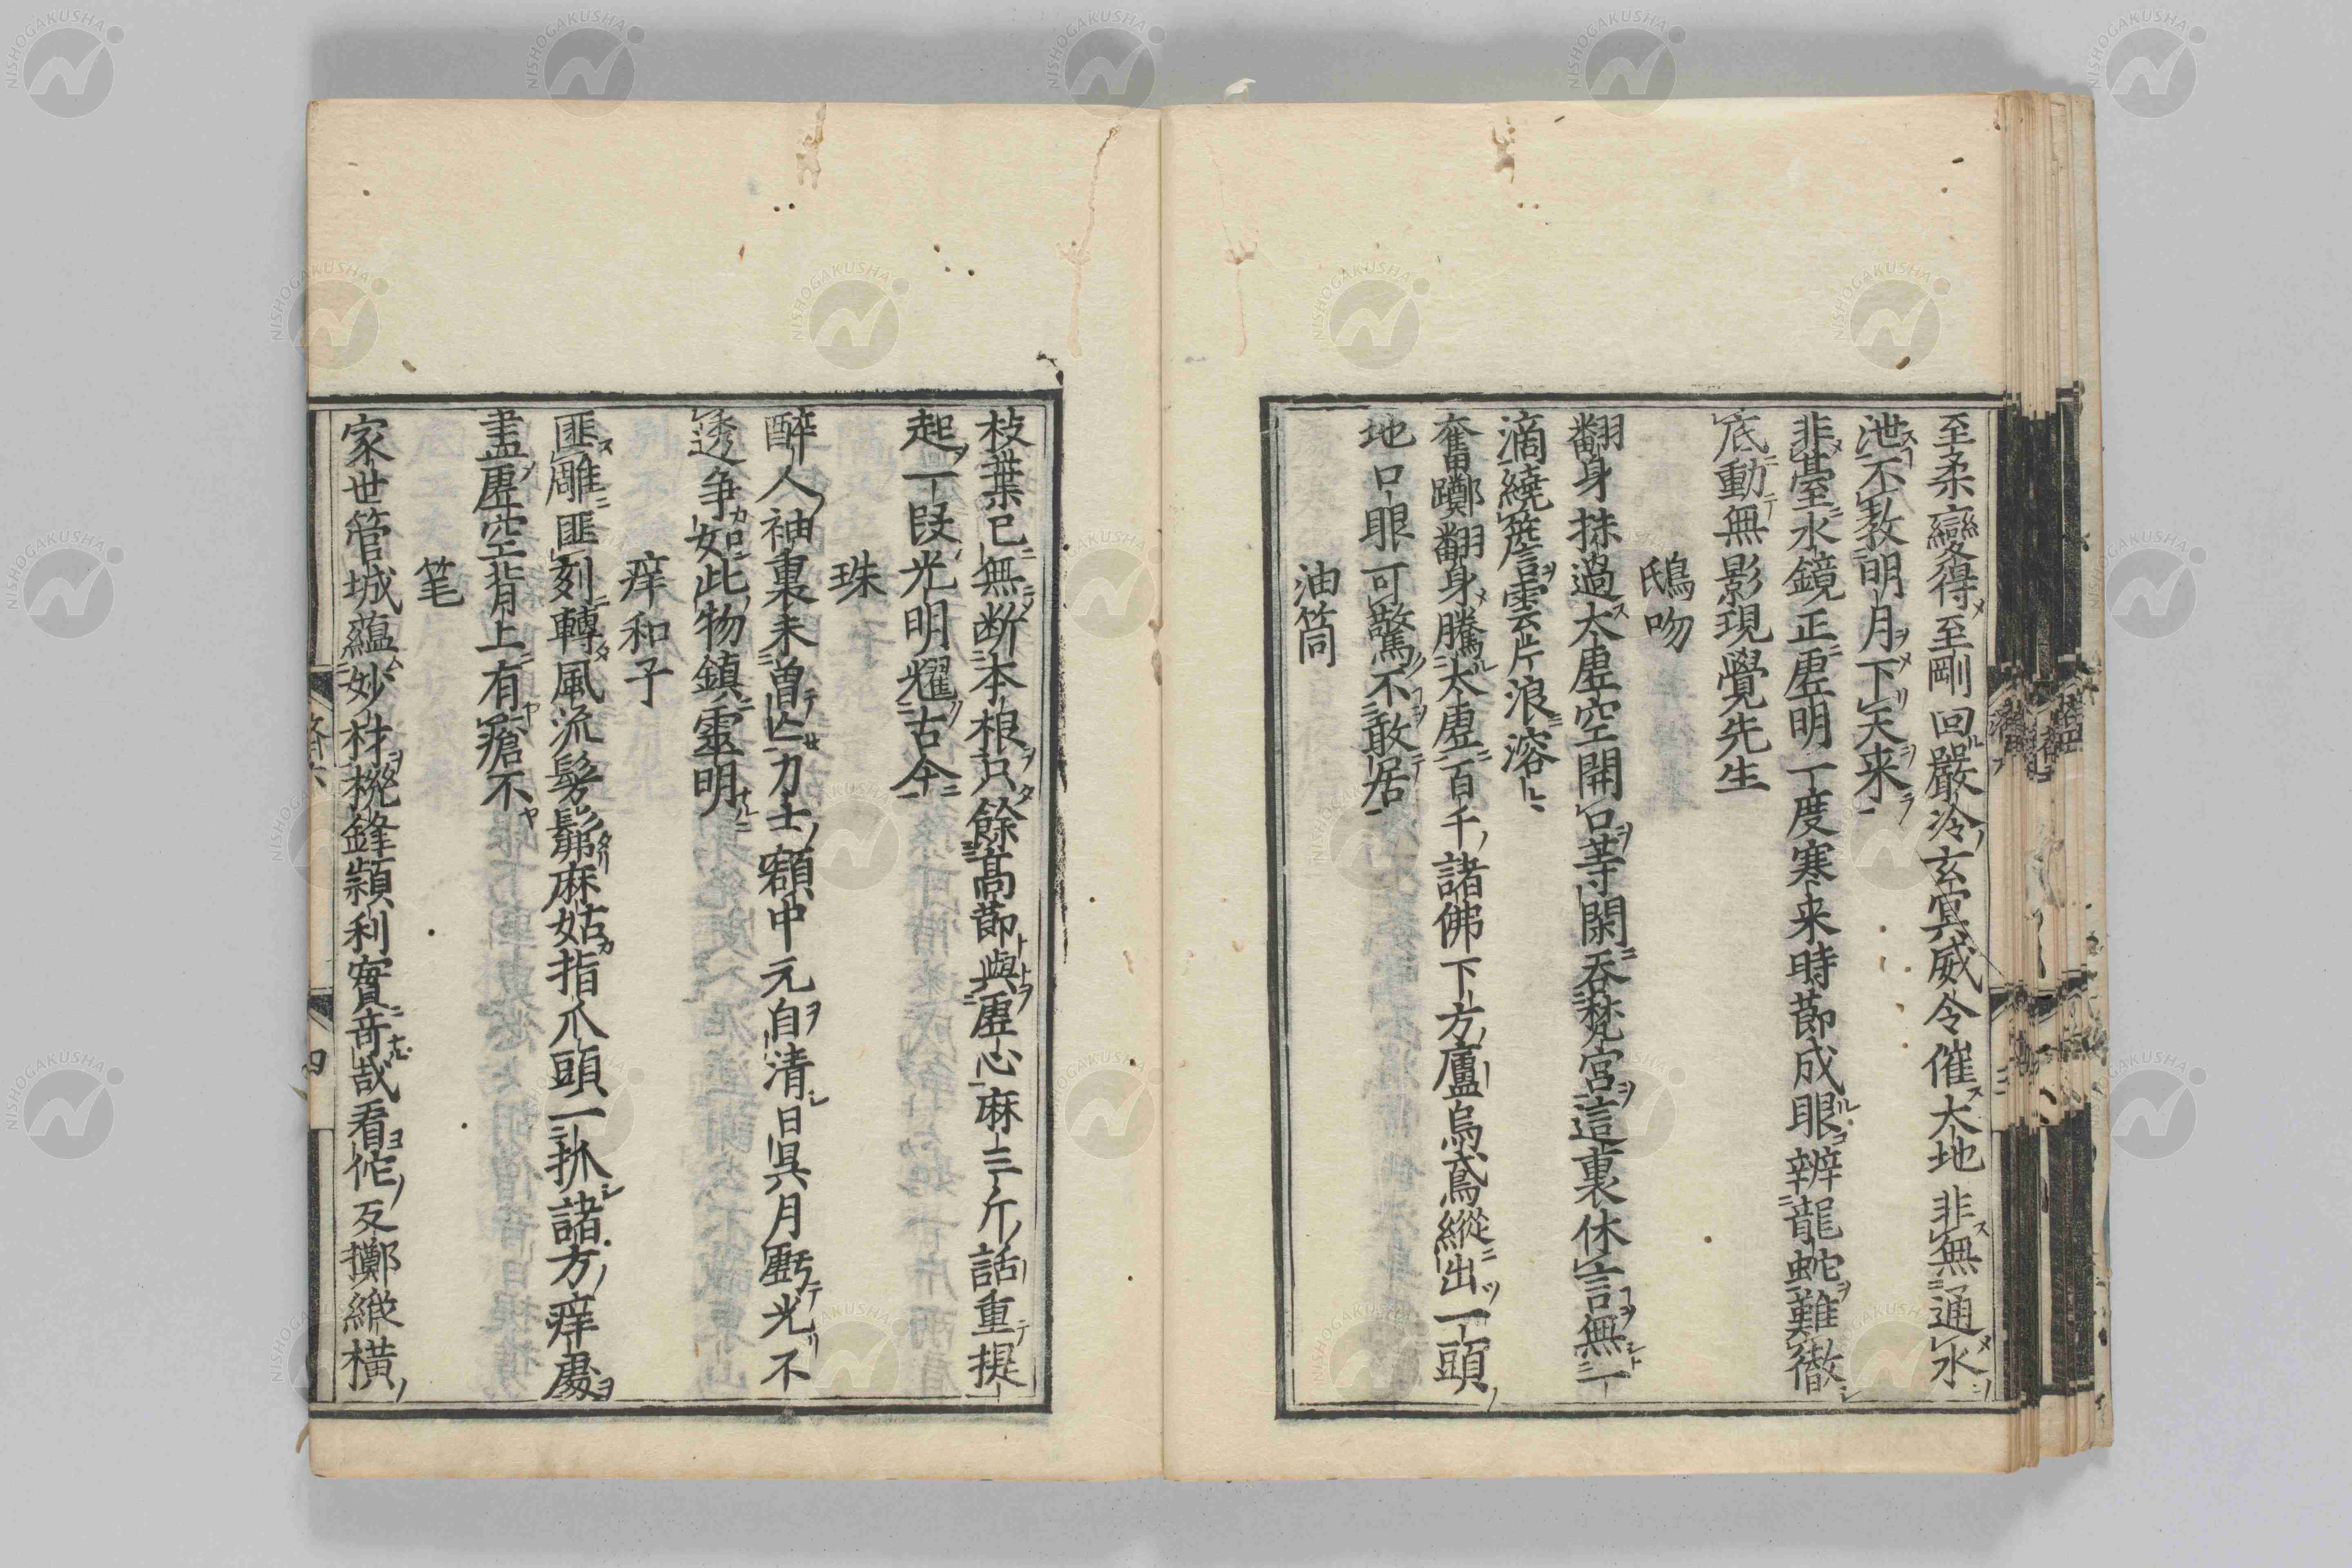 至柔變得至剛回嚴冷玄冥威令催大地非無通水
池不教明月下天来
非臺水鏡正虛明一度寒来時節成眼辨龍蛇難徹
底動無影現覺先生
鴟吻
翻身抹過太虛空開口等閑吞梵宮這裏休言無一
滴繞簷雲片浪溶〻
奮躑翻身騰太虛百千諸佛下方廬烏鳶縱出一頭
地口眼可驚不敢居
油筒
枝葉已無断本根只餘高節與虛心麻三斤話重提
起一段光明耀古今
珠
醉人袖裏未曽亡力士額中元自清日具月虧光不
透争如此物鎮靈明
痒和子
匪雕匪刻轉風流髣髴麻姑指爪頭一抓諸方痒處
盡虛空背上有瘡不
笔
家世管城蘊妙材機鋒頴利實奇哉看佗互擲縱橫
四
NISHOGAKUSHA